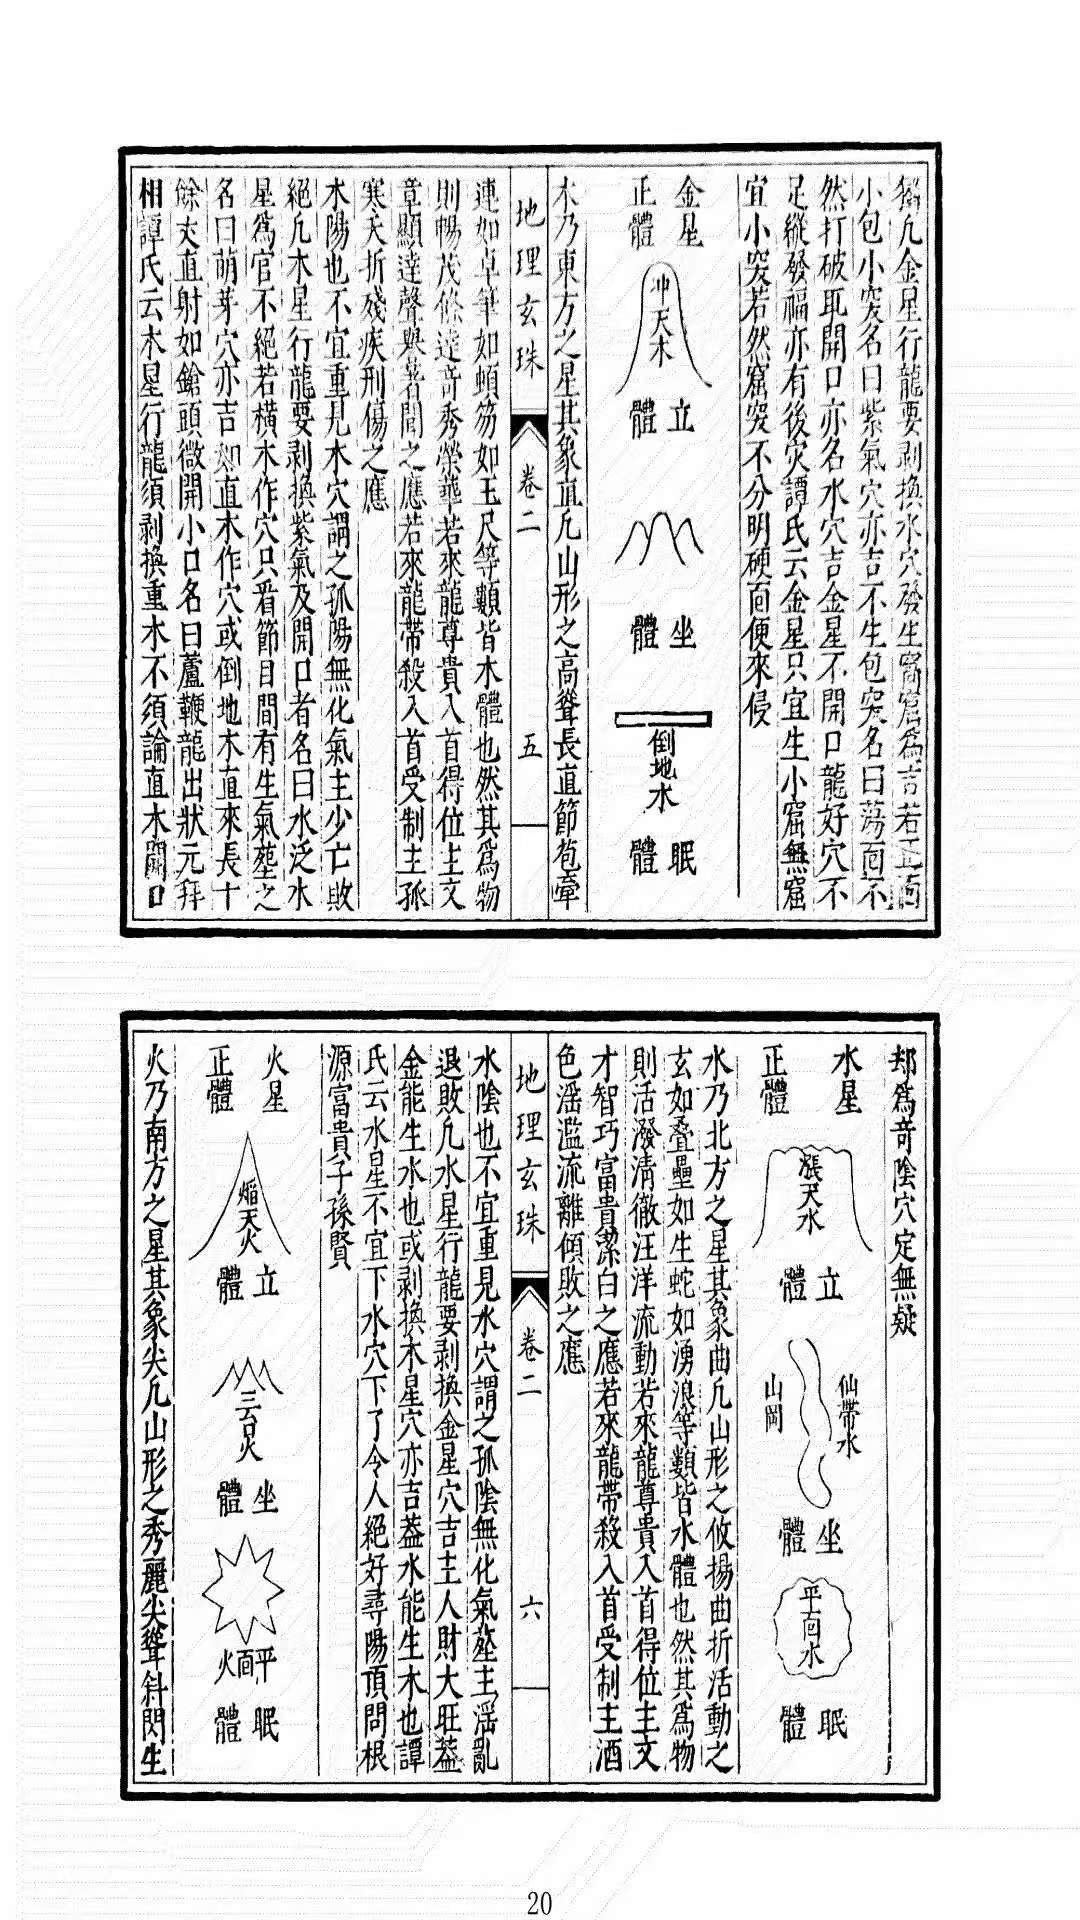 猫凡金星行龍要剥換水穴發生窩窟為吉若正面
小包小突名曰紫氣穴亦吉不生包突名曰蕩面不
然打破瓦開口亦名水穴吉金星不開口龍好穴不
足縱發福亦有後灾譚氏云金星只宜生小窟無窟
宜小突若然窟突不分明硬面便來侵
金星
正體
冲天木
立體
坐體
倒地木
眠體
木乃東方之星其象直凡山形之高聳長直節苞牽
地理玄珠
卷二
五
連如卓筆如頓笏如玉尺等類皆木體也然其為物
則暢茂條達奇秀榮華若來龍尊貴入首得位主文
章顯達聲譽著聞之應若來龍帶殺入首受制主孤
寒夭折殘疾刑傷之應
木陽也不宜重見木穴謂之孤陽無化氣主少亡敗
絕凡木星行龍要剥換紫氣及開口者名曰水泛木
星為官不絕若橫木作穴只看節目間有生氣塟之
名曰萌芽穴亦吉如直木作穴或倒地木直來長十
餘丈直射如鎗頭微開小口名曰蘆鞭龍出狀元拜
相譚氏云木星行龍須剥換重木不須論直木開口
却為奇陰穴定無疑
水星
正體
漲天水
立體
仙帶水
山岡
坐體
平面水
眠體
水乃北方之星其象曲凡山形之攸揚曲折活動之
玄如叠壘如生蛇如湧浪等類皆水體也然其為物
則活潑清徹汪洋流動若來龍尊貴入首得位主文
才智巧富貴潔白之應若來龍帶殺入首受制主酒
色滛濫流離傾敗之應
地理玄珠
卷二
六
水陰也不宜重見水穴謂之孤陰無化氣塟主滛亂
退敗凡水星行龍要剥換金星穴吉主人財大旺葢
金能生水也或剥換木星穴亦吉葢水能生木也譚
氏云水星不宜下水穴下了令人絕好尋陽頂問根
源富貴子孫賢
火星
正體
焰天火
立體
三台火
坐體
平面火
眠體
火乃南方之星其象尖凡山形之秀麗尖聳斜閃生
20